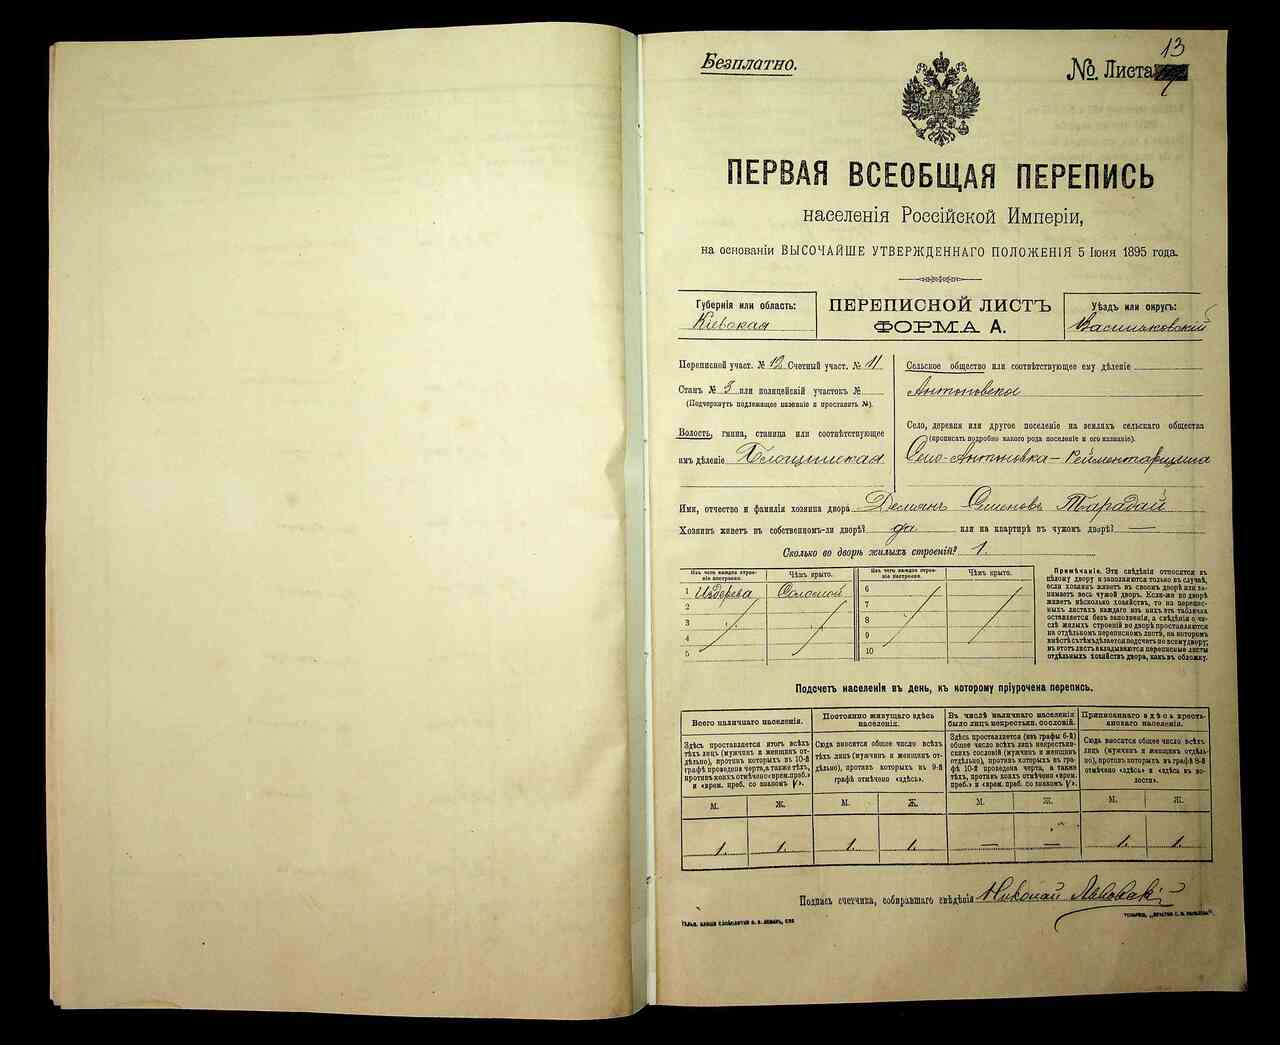 Безплатно.
№. Листа 13
ПЕРВАЯ ВСЕОБЩАЯ ПЕРЕПИСЬ
населенія Россійской Имперіи,
на основаніи ВЫСОЧАЙШЕ УТВЕРЖДЕННАГО ПОЛОЖЕНІЯ 5 Іюня 1895 года.
Губернія или область:
Кіевская
ПЕРЕПИСНОЙ ЛИСТЪ
ФОРМА А.
Уѣздъ или округъ:
Васильковскій
Переписной участ. № 12 Счетный участ. № 11
Станъ № 3 или полицейскій участокъ №
(Подчеркнуть подлежащее названіе и проставить №).
Волость, гмина, станица или соотвѣтствующее
имъ дѣленіе
Сельское общество или соотвѣтствующее ему дѣленіе
Антоновское
Село, деревня или другое поселеніе на земляхъ сельскаго общества
(прописать подробно какого рода поселеніе и его названіе).
Село-Антоновка-Рейментарщина
Имя, отчество и фамилія хозяина двора Демьянъ Семеновъ Тарадай
Хозяинъ живетъ въ собственномъ-ли дворѣ? да или на квартирѣ въ чужомъ дворѣ? —
Сколько во дворѣ жилыхъ строеній? 1.
Изъ чего каждое строеніе построено.
Чѣмъ крыто.
Изъ чего каждое строеніе построено.
Чѣмъ крыто.
1 Издерева Соломой 6
2 7
3 8
4 9
5 10
Примѣчаніе. Эти свѣдѣнія относятся къ
цѣлому двору и заполняются только въ случаѣ,
если хозяинъ живетъ въ своемъ дворѣ или занимаетъ
весь чужой дворъ. Если-же во дворѣ
живетъ нѣсколько хозяйствъ, то на переписныхъ
листахъ каждаго изъ нихъ эта табличка
оставляется безъ заполненія, а свѣдѣнія о числѣ
жилыхъ строеній во дворѣ проставляются
на отдѣльномъ переписномъ листѣ, на которомъ
вмѣстѣ съ тѣмъ дѣлается подсчетъ по всему двору;
въ этотъ листъ вкладываются переписные листы
отдѣльныхъ хозяйствъ двора, какъ въ обложку.
Подсчетъ населенія въ день, къ которому пріурочена перепись.
Всего наличнаго населенія.
Здѣсь проставляется итогъ всѣхъ
тѣхъ лицъ (мужчинъ и женщинъ отдѣльно),
противъ которыхъ въ 10-й
графѣ проведена черта, а также тѣхъ,
противъ коихъ отмѣчено «врем. преб.»
и «врем. преб. со знакомъ V».
Постоянно живущаго здѣсь
населенія.
Сюда вносится общее число всѣхъ
тѣхъ лицъ (мужчинъ и женщинъ отдѣльно),
противъ которыхъ въ 9-й
графѣ отмѣчено «здѣсь».
Въ числѣ наличнаго населенія
было лицъ некрестьян. сословій.
Здѣсь проставляется (изъ графы 6-й)
общее число всѣхъ лицъ некрестьянскихъ
сословій (мужчинъ и женщинъ
отдѣльно), противъ которыхъ въ графѣ
10-й проведена черта, а также
тѣхъ, противъ коихъ отмѣчено «врем.
преб.» и «врем. преб. со знакомъ V».
Приписаннаго здѣсь крестьянскаго
населенія.
Сюда вносится общее число всѣхъ
лицъ (мужчинъ и женщинъ отдѣльно),
противъ которыхъ въ графѣ 8-й
отмѣчено «здѣсь» и «здѣсь въ волости».
М. Ж. М. Ж. М. Ж. М. Ж.
1. 1. 1. 1. — — 1. 1.
Подпись счетчика, собиравшаго свѣдѣнія Николай